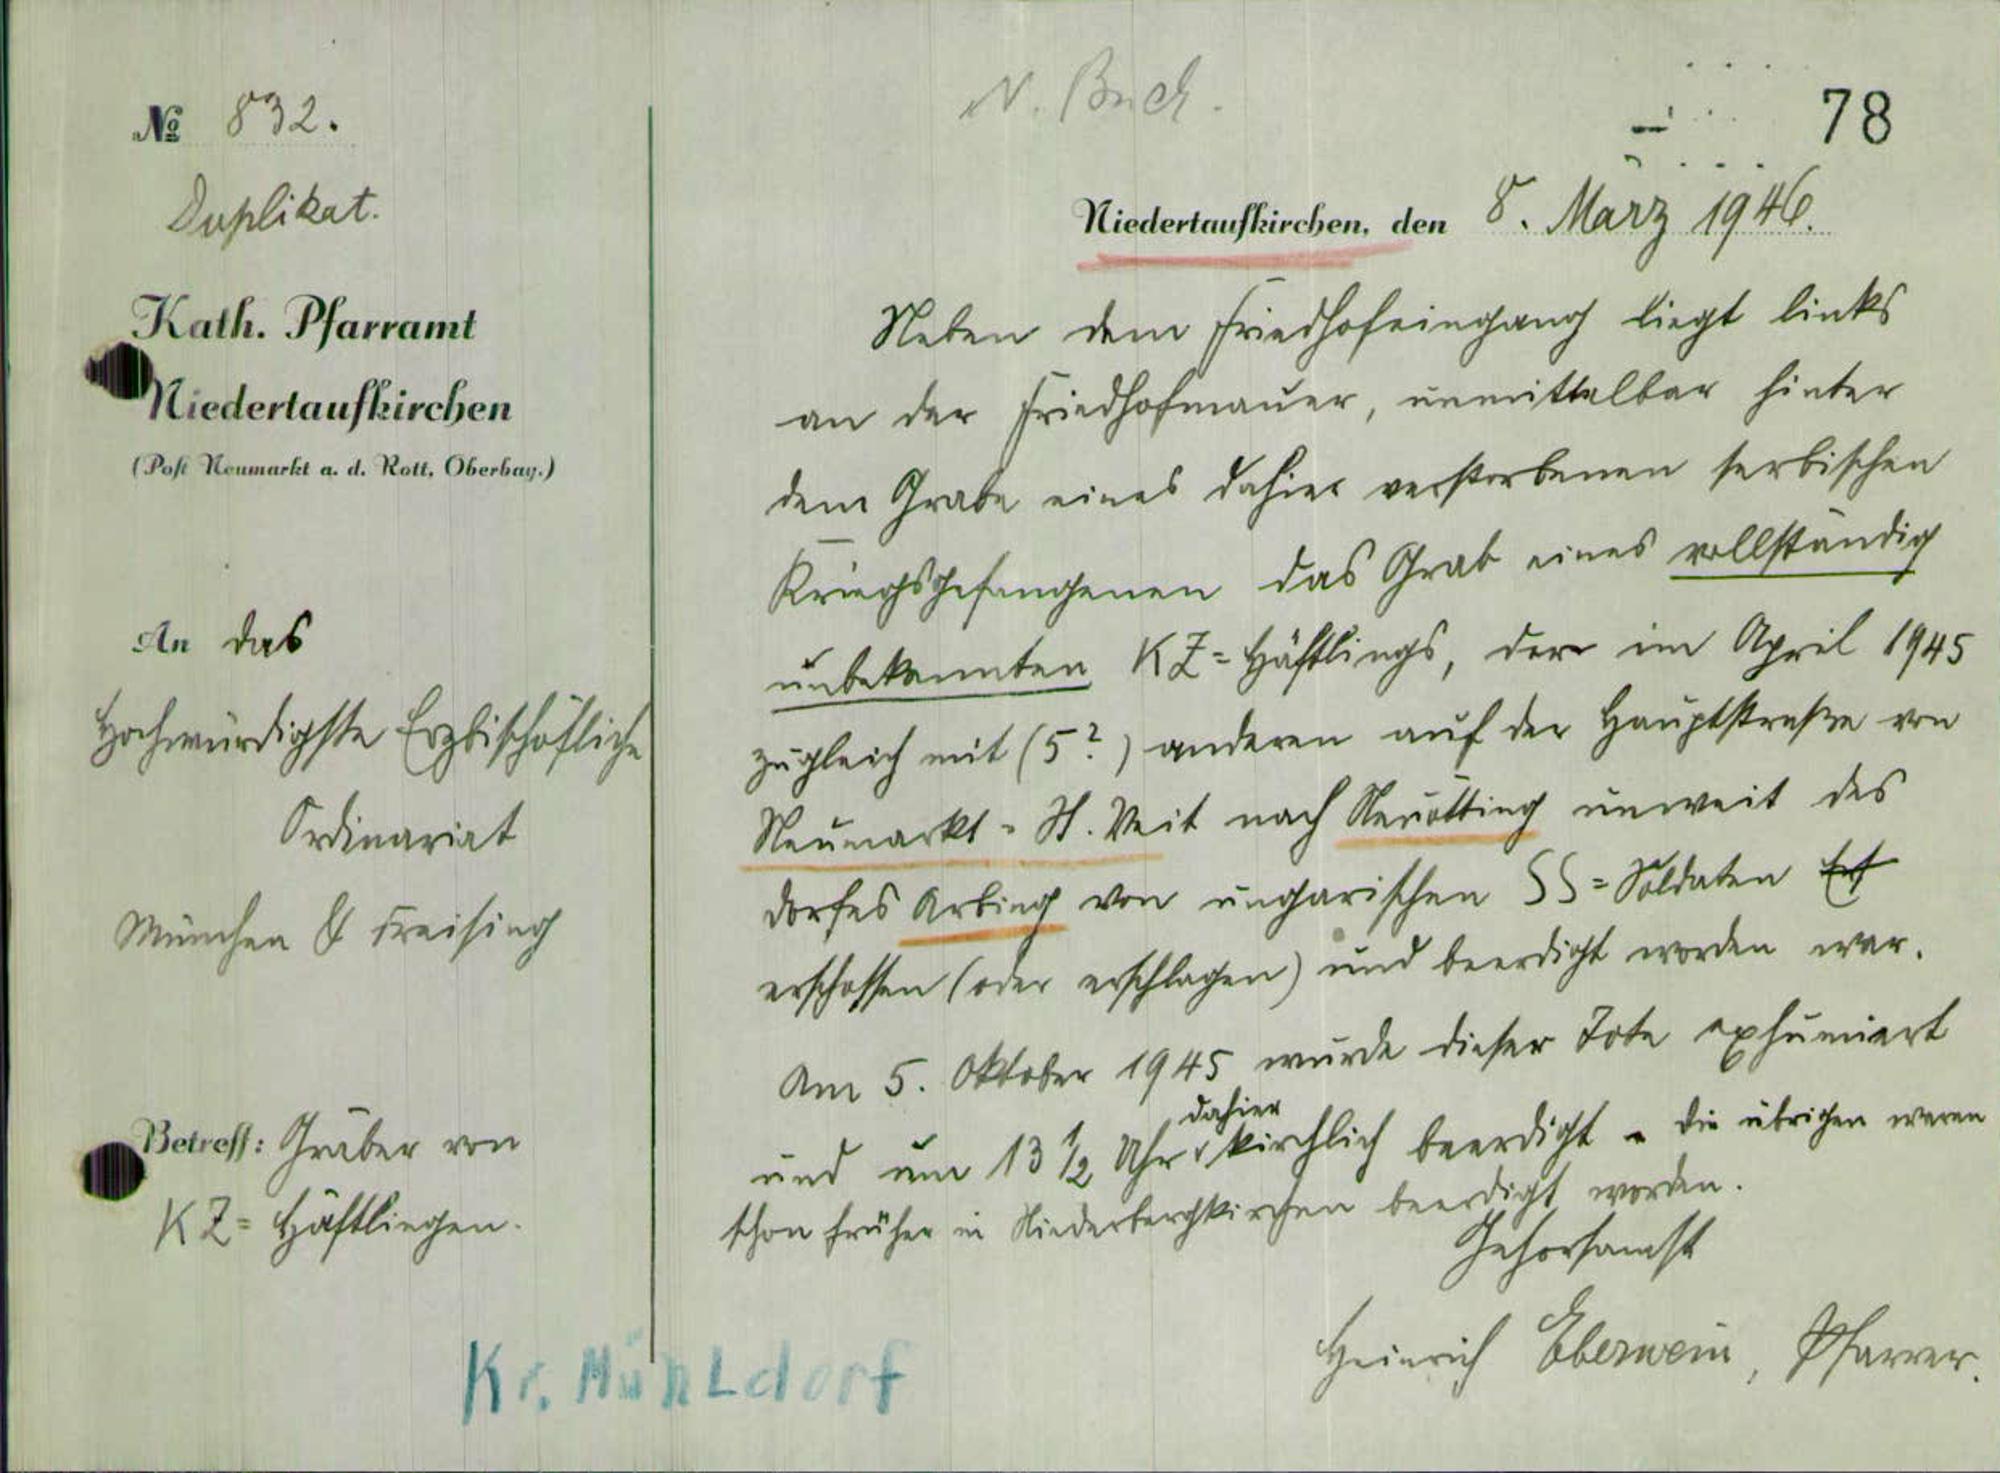 № 832.
Duplikat.
Kath. Pfarramt
Niedertaufkirchen
(Post Neumarkt a. d. Rott, Oberbay.)
An das
Hochwürdigste Erzbischöfliche
Ordinariat
München & Freising
Betreff: Gräber von
KZ=Häftlingen.
N. Buch.
78
Niedertaufkirchen, den 8. März 1946.
Neben dem Friedhofeingang liegt links
an der Friedhofmauer, unmittelbar hinter
dem Grabe eines dahier verstorbenen serbischen
Kriegsgefangenen das Grab eines vollständig
unbekannten KZ=Häftlings, der im April 1945
zugleich mit (5?) anderen auf der Hauptstraße von
Neumarkt-St. Veit nach Neuötting unweit des
Dorfes Arbing von ungarischen SS=Soldaten Erf
erschossen (oder erschlagen) und beerdigt worden war.
Am 5. Oktober 1945 wurde dieser Tote exhumiert
und um 13 1/2 Uhr dahier kirchlich beerdigt - die übrigen waren
schon früher in Niederbergkirchen beerdigt worden.
Gehorsamst
Heinrich Eberwein, Pfarrer.
Kr. Mühldorf